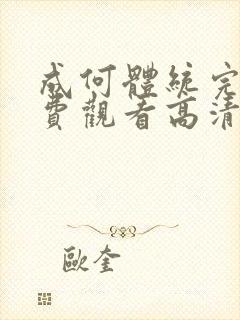 成何體統完
費觀看高清
歐奎